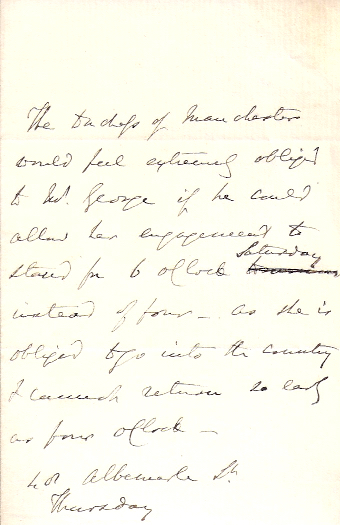 The Duchess of Manchester
would feel extremely obliged
to Mr. George if he could
allow her engagement to
stand for 6 o'Clock Saturday
instead of four - as she is
obliged to go into the country
& cannot return so early
as four o'Clock -
40 Albemarle St.
Thursday